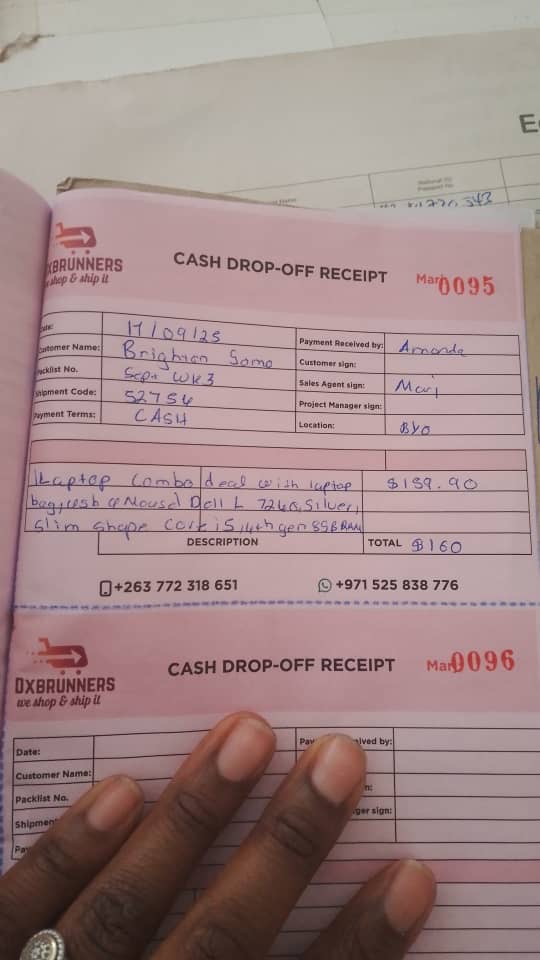 E
National ID
Passport No.
XBRUNNERS
shop & ship it
CASH DROP-OFF RECEIPT
Mari 0095
Date: 17/09/25
Payment Received by: Amanda
Customer Name: Brighton Somo
Customer sign:
Packlist No. Sept WK3
Sales Agent sign: Mari
Shipment Code: 52754
Project Manager sign:
Payment Terms: CASH
Location: BYO
Laptop combo deal with laptop $159.90
Slim shape
DESCRIPTION
TOTAL $160
+263 772 318 651
+971 525 838 776
DXBRUNNERS
we shop & ship it
CASH DROP-OFF RECEIPT
Mari 0096
Date:
Customer Name:
Packlist No.
Shipmen
Pa
ived by:
n:
ger sign: